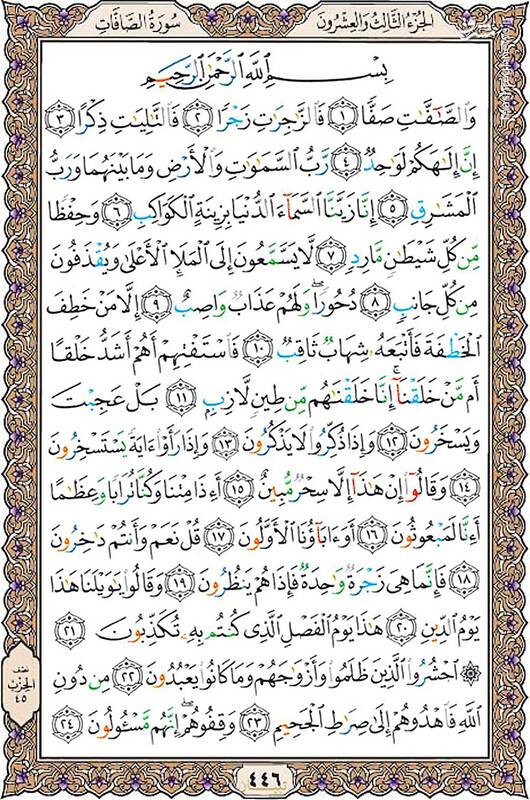 سُورَةُ الصَّافَّاتِ
الجُزْءُ الثَّالِثُ وَالعِشْرُونَ
بِسْمِ ٱللَّهِ ٱلرَّحْمَٰنِ ٱلرَّحِيمِ
وَٱلصَّٰٓفَّٰتِ صَفًّا ١ فَٱلزَّٰجِرَٰتِ زَجْرًا ٢ فَٱلتَّٰلِيَٰتِ ذِكْرًا ٣
إِنَّ إِلَٰهَكُمْ لَوَٰحِدٌ ٤ رَّبُّ ٱلسَّمَٰوَٰتِ وَٱلْأَرْضِ وَمَا بَيْنَهُمَا وَرَبُّ
ٱلْمَشَٰرِقِ ٥ إِنَّا زَيَّنَّا ٱلسَّمَآءَ ٱلدُّنْيَا بِزِينَةٍ ٱلْكَوَاكِبِ ٦ وَحِفْظًا
مِّن كُلِّ شَيْطَٰنٍ مَّارِدٍ ٧ لَّا يَسَّمَّعُونَ إِلَى ٱلْمَلَإِ ٱلْأَعْلَىٰ وَيُقْذَفُونَ
مِن كُلِّ جَانِبٍ ٨ دُحُورًا ۖ وَلَهُمْ عَذَابٌ وَاصِبٌ ٩ إِلَّا مَنْ خَطِفَ
ٱلْخَطْفَةَ فَأَتْبَعَهُۥ شِهَابٌ ثَاقِبٌ ١٠ فَٱسْتَفْتِهِمْ أَهُمْ أَشَدُّ خَلْقًا
أَم مَّنْ خَلَقْنَآ ۚ إِنَّا خَلَقْنَٰهُم مِّن طِينٍ لَّازِبٍ ١١ بَلْ عَجِبْتَ
وَيَسْخَرُونَ ١٢ وَإِذَا ذُكِّرُوا۟ لَا يَذْكُرُونَ ١٣ وَإِذَا رَأَوْا۟ ءَايَةً يَسْتَسْخِرُونَ
١٤ وَقَالُوٓا۟ إِنْ هَٰذَآ إِلَّا سِحْرٌ مُّبِينٌ ١٥ أَءِذَا مِتْنَا وَكُنَّا تُرَابًا وَعِظَٰمًا
أَءِنَّا لَمَبْعُوثُونَ ١٦ أَوَءَابَآؤُنَا ٱلْأَوَّلُونَ ١٧ قُلْ نَعَمْ وَأَنتُمْ دَٰخِرُونَ
١٨ فَإِنَّمَا هِىَ زَجْرَةٌ وَٰحِدَةٌ فَإِذَا هُمْ يَنظُرُونَ ١٩ وَقَالُوا۟ يَٰوَيْلَنَا هَٰذَا
يَوْمُ ٱلدِّينِ ٢٠ هَٰذَا يَوْمُ ٱلْفَصْلِ ٱلَّذِى كُنتُم بِهِۦ تُكَذِّبُونَ ٢١
۞ ٱحْشُرُوا۟ ٱلَّذِينَ ظَلَمُوا۟ وَأَزْوَٰجَهُمْ وَمَا كَانُوا۟ يَعْبُدُونَ ٢٢ مِن دُونِ
ٱللَّهِ فَٱهْدُوهُمْ إِلَىٰ صِرَٰطِ ٱلْجَحِيمِ ٢٣ وَقِفُوهُمْ ۖ إِنَّهُم مَّسْـُٔولُونَ ٢٤
نصف
الحزب
٤٥
٤٤٦